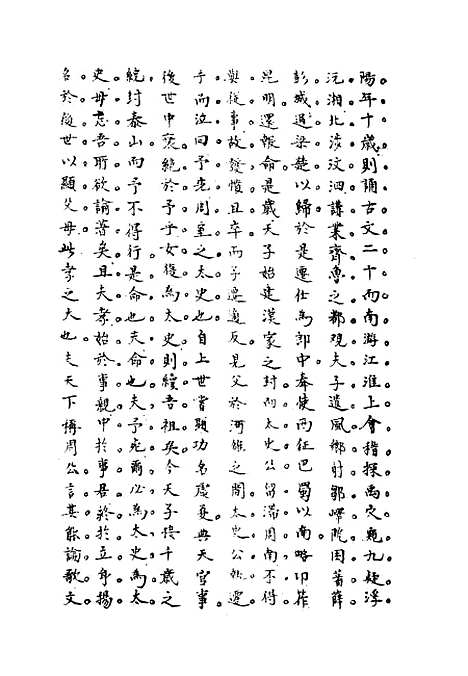 陽。年十歲則誦古文二十而南游江淮上會稽探禹穴窺九疑。浮。
沅湘。北涉汶泗。講業齊魯之都。觀夫子遺風。鄉射鄒嶧。阨困蕃薛。
彭城。過梁楚以歸。於是遷仕為郎中。奉使西征巴蜀以南。略卭筰
昆明。還報命。是歲天子始建漢家之封。而太史公留滯周南。不得。
與從事。故發憤且卒。而子遷適反。見父於河雒之間。太史公執遷
手而泣曰予先周室之太史也。自上世嘗顯功名虞夏。典天官事。
後世中衰。絕於予乎。女復為太史。則續吾祖矣。今天子接千歲之
統。封泰山。而予不得行。是命也夫。命也夫。予死。爾必為太史。為太
史。毋忘吾所欲論著矣。且夫孝始於事親。中於事君。終於立身。揚
名於後世。以顯父母。此孝之大也。夫天下稱周公。言其能論歌文。